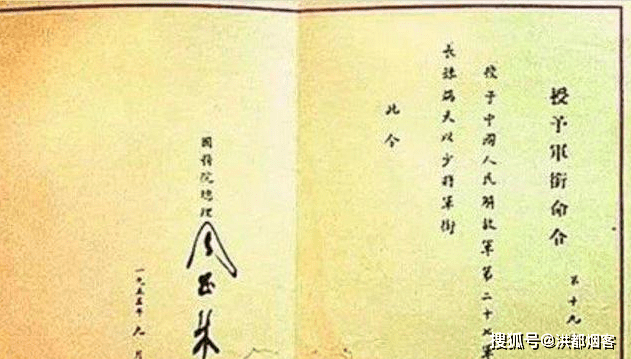 授予軍銜命令
第十九
授予中國人民解放軍第二十七軍
長孫端夫以少將軍銜
此令
國務院總理
周恩来
一九五五年九月
搜狐号@洪都烟客